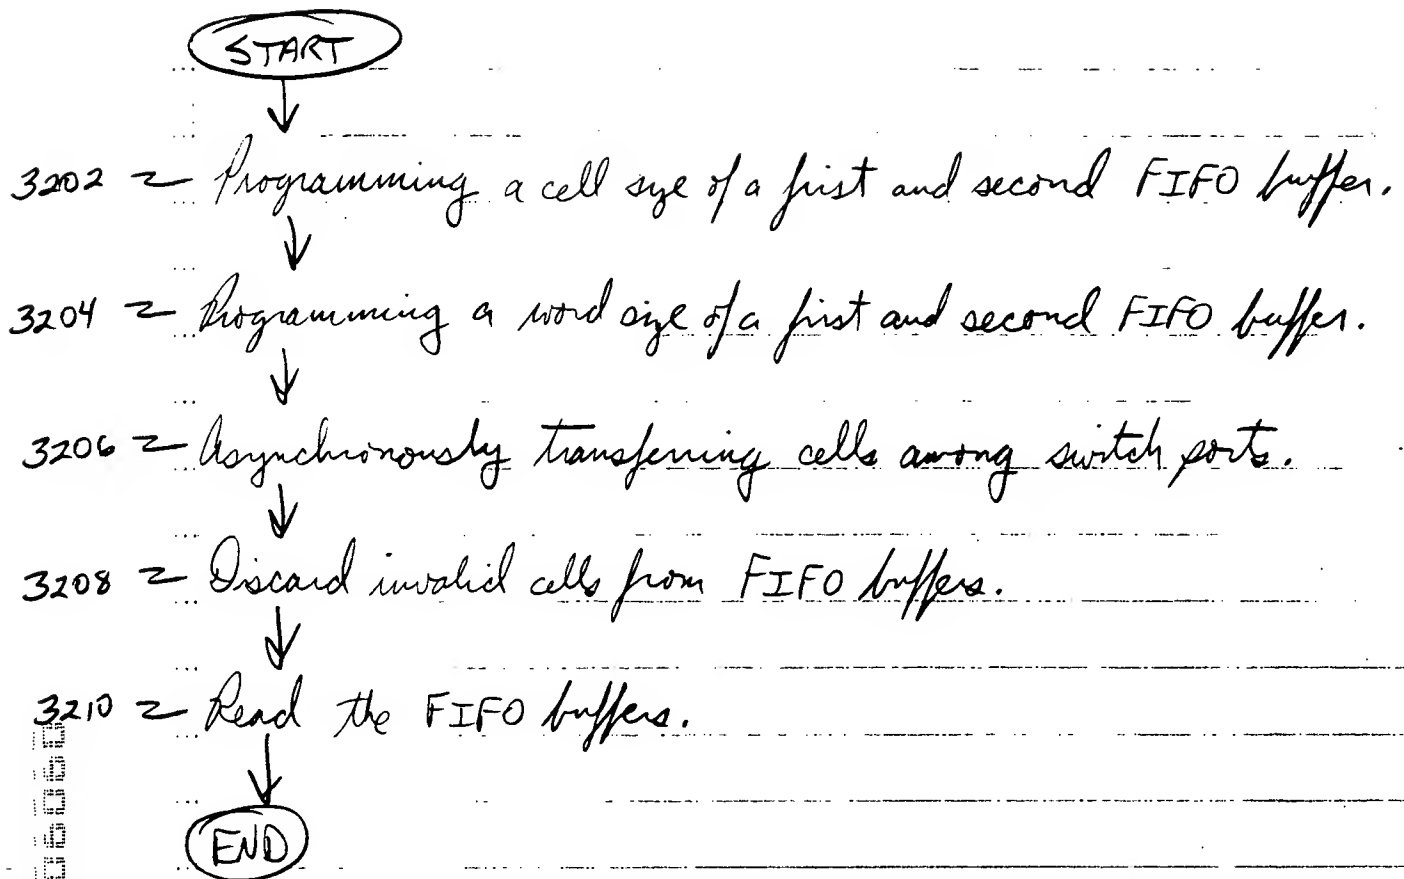 START
3202 Programming a cell size of a first and second FIFO buffer.
3204 Programming a word size of a first and second FIFO buffer.
3206 Asynchronously transferring cells among switch ports.
3208 Discard invalid cells from FIFO buffers.
3210 Read the FIFO buffers.
END